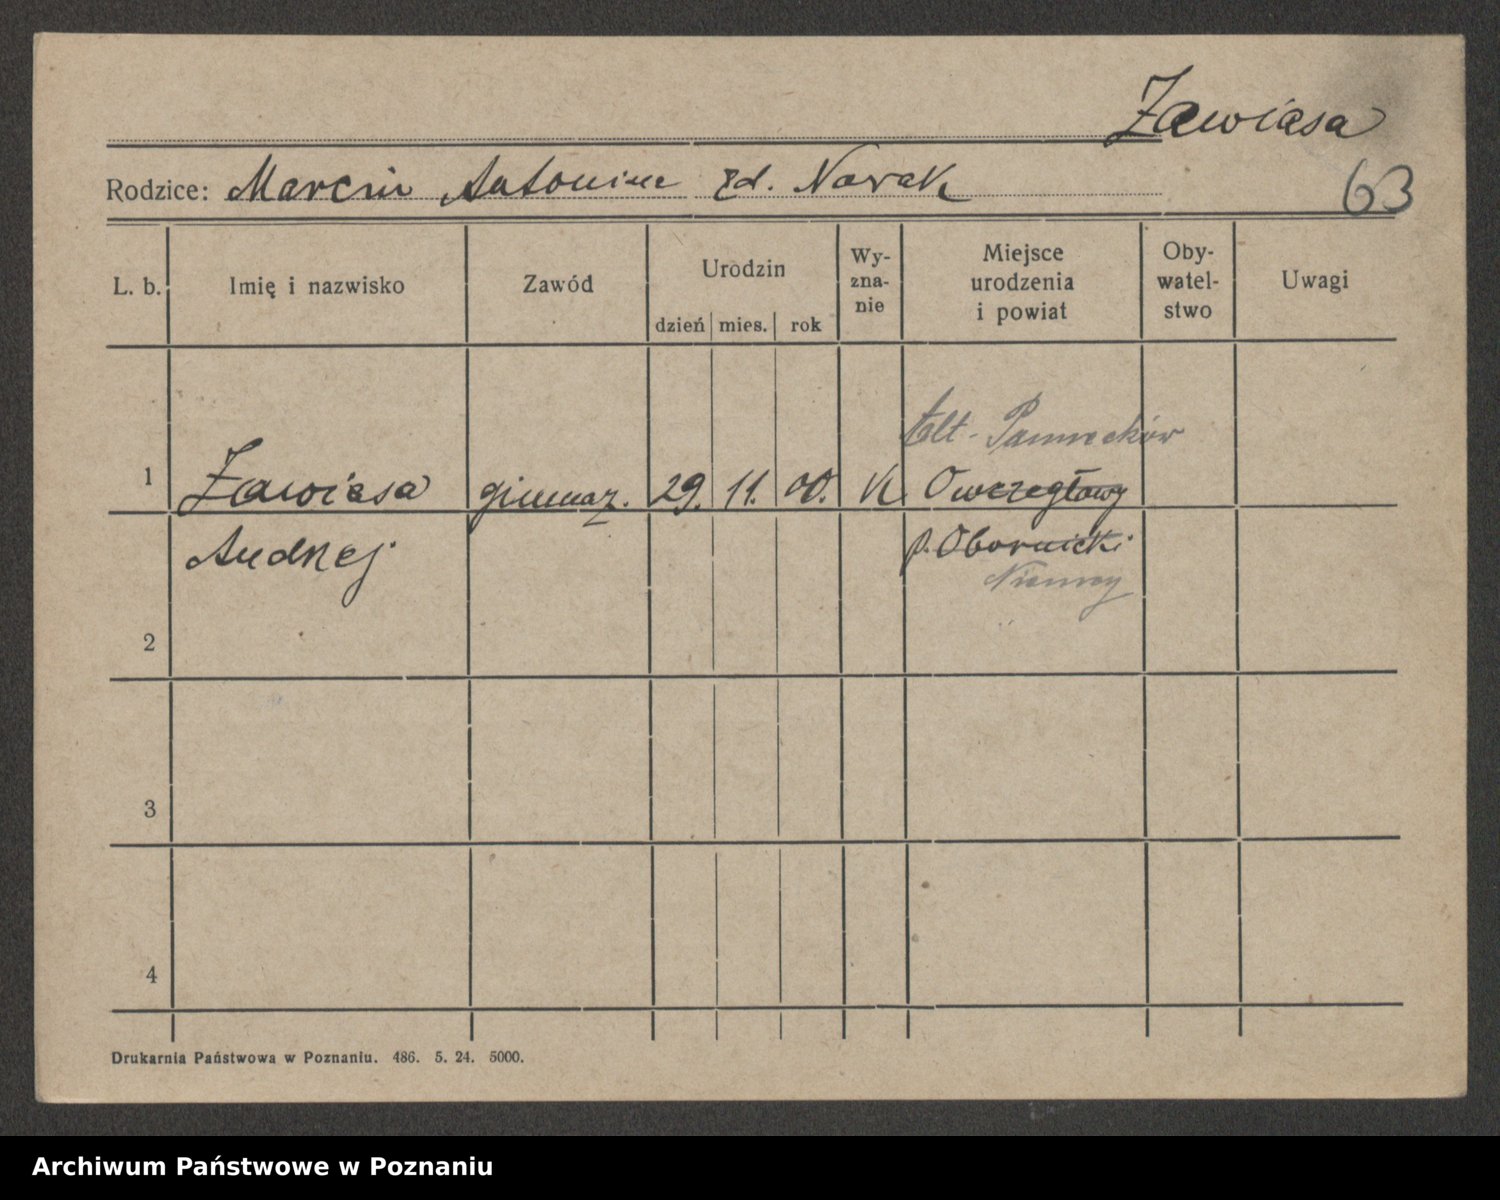 Zawiasa
Rodzice: Marcin Antonina zd. Nowak
63
L. b. Imię i nazwisko Zawód Urodzin dzień mies. rok Wy-zna-nie Miejsce urodzenia i powiat Oby-watel-stwo Uwagi
Alt-
1 Zawiasa gimnaz. 29. 11. 00. K Owczegłowy
Andrzej p. Obornicki
Niemcy
2
3
4
Drukarnia Państwowa w Poznaniu. 486. 5. 24. 5000.
Archiwum Państwowe w Poznaniu